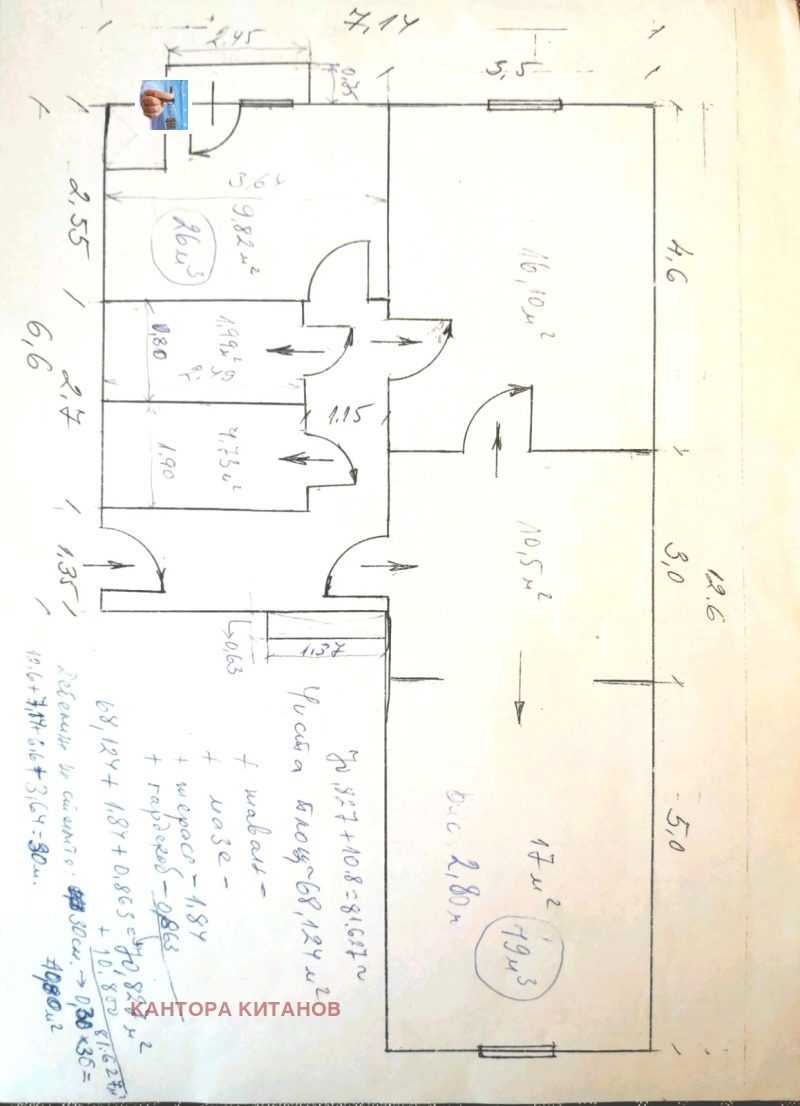 7,14
2.45
0.75
3,5
3,64
9,82 м²
26 м³
2,55
16,10 м²
4,6
1,99 м²
0,80
2,7
6,6
1.15
4,73 м²
1.90
10,5 м²
3,0
12.6
1,35
1.37
0,63
5,0
17 м²
79 м³
Вис. 2,80 м
70,827 + 10.8 = 81.627 м
Чиста площ - 68,124 м²
+ таван =
+ мазе -
+ тераса - 1.84
+ гардероб - 0,863
68,124 + 1.84 + 0.863 = 70,827 м²
+ 10.800
81.627 м²
30 см. → 0,30 × 36 =
10,80 м²
12.6 + 7,14 + 6.6 + 3,64 = 30 м.
КАНТОРА КИТАНОВ